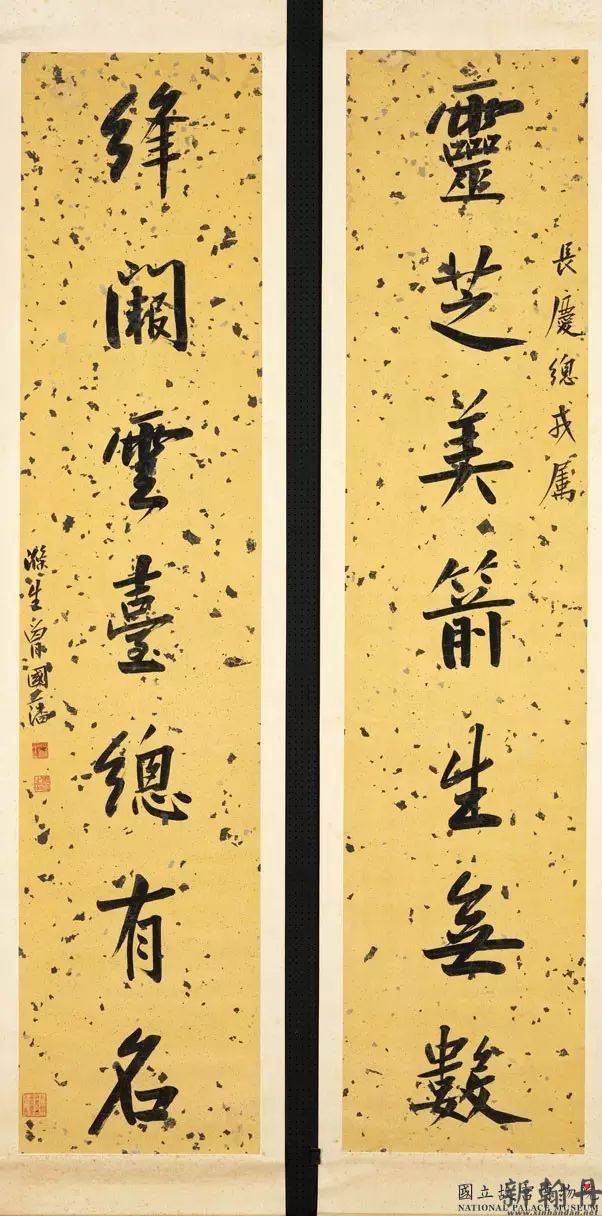 長慶總戎属
靈芝美箭生無數
絳闕雲臺總有名
滌生曾國藩
國立故宮博物
新翰丹
NATIONAL PALACE MUSEUM
www.xinhandan.net